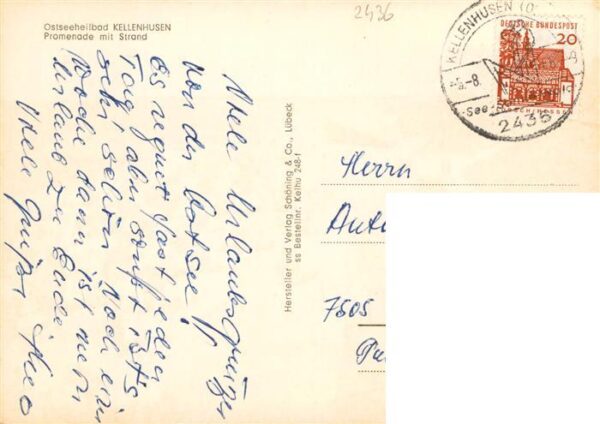 Ostseeheilbad KELLENHUSEN
Promenade mit Strand
2436
KELLENHUSEN (O
-5.-8.
2435
DEUTSCHE BUNDESPOST
20
Viele Urlaubsgrüße
von der Ostsee!
Es regnet fast jeden
Tag aber sonst ist's
sehr schön. Noch eine
Woche dann ist mein
Urlaub zu Ende.
Viele Grüße
Hersteller und Verlag Schöning & Co., Lübeck
ss Bestellnr. Kelhu 248-f
Herrn
7505